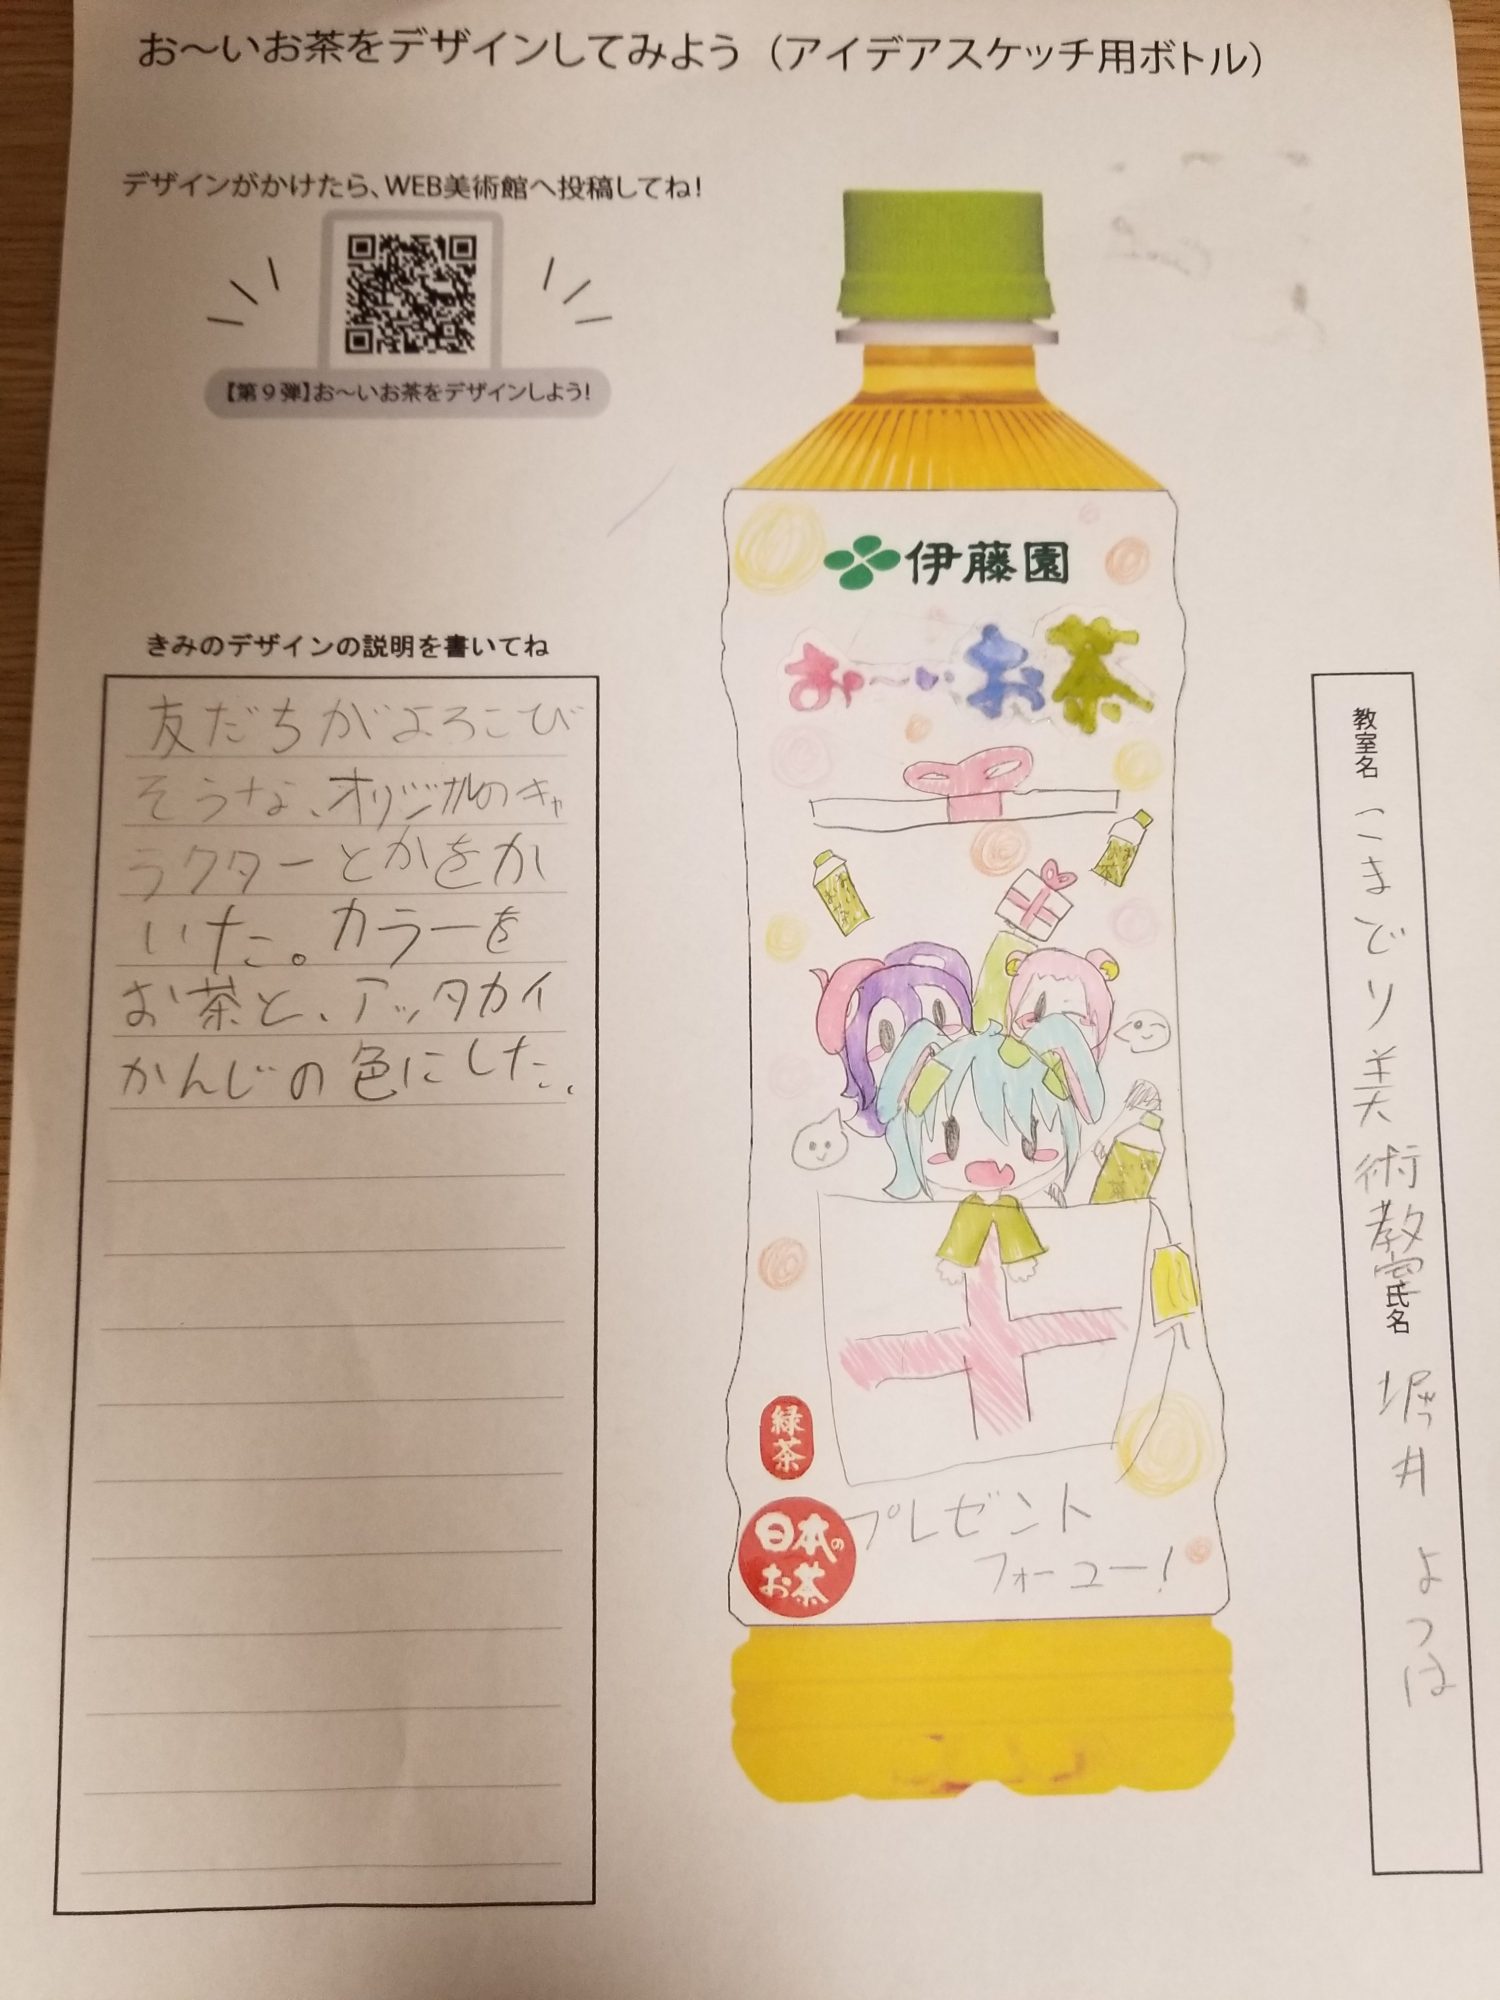 お～いお茶をデザインしてみよう（アイデアスケッチ用ボトル）
デザインがかけたら、WEB美術館へ投稿してね！
【第９弾】お～いお茶をデザインしよう!
きみのデザインの説明を書いてね
友だちがよろこび
そうな、オリジナルのキャ
ラクターとかをか
いた。カラーを
お茶と、アッタカイ
かんじの色にした。
伊藤園
お～いお茶
緑茶
日本の
お茶
プレゼント
フォーユー！
教室名 こまどり美術教室
氏名 堀井 よつは